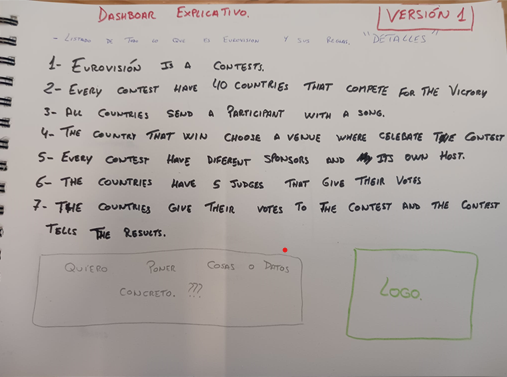 DASHBOAR EXPLICATIVO.
VERSIÓN 1
- LISTADO DE TODO LO QUE ES EUROVISION Y SUS "DETALLES"
1- EUROVISIÓN IS A CONTESTS.
2- EVERY CONTEST HAVE 40 COUNTRIES THAT COMPETE FOR THE VICTORY
3- ALL COUNTRIES SEND A PARTICIPANT WITH A SONG.
4- THE COUNTRY THAT WIN CHOOSE A VENUE WHERE CELEBATE THE CONTEST
5- EVERY CONTEST HAVE DIFERENT SPONSORS AND ITS OWN HOST.
6- THE COUNTRIES HAVE 5 JUDGES THAT GIVE THEIR VOTES
7- THE COUNTRIES GIVE THEIR VOTES TO THE CONTEST AND THE CONTEST
TELLS THE RESULTS.
QUIERO PONER COSAS O DATOS
CONCRETO. ???
LOGO.